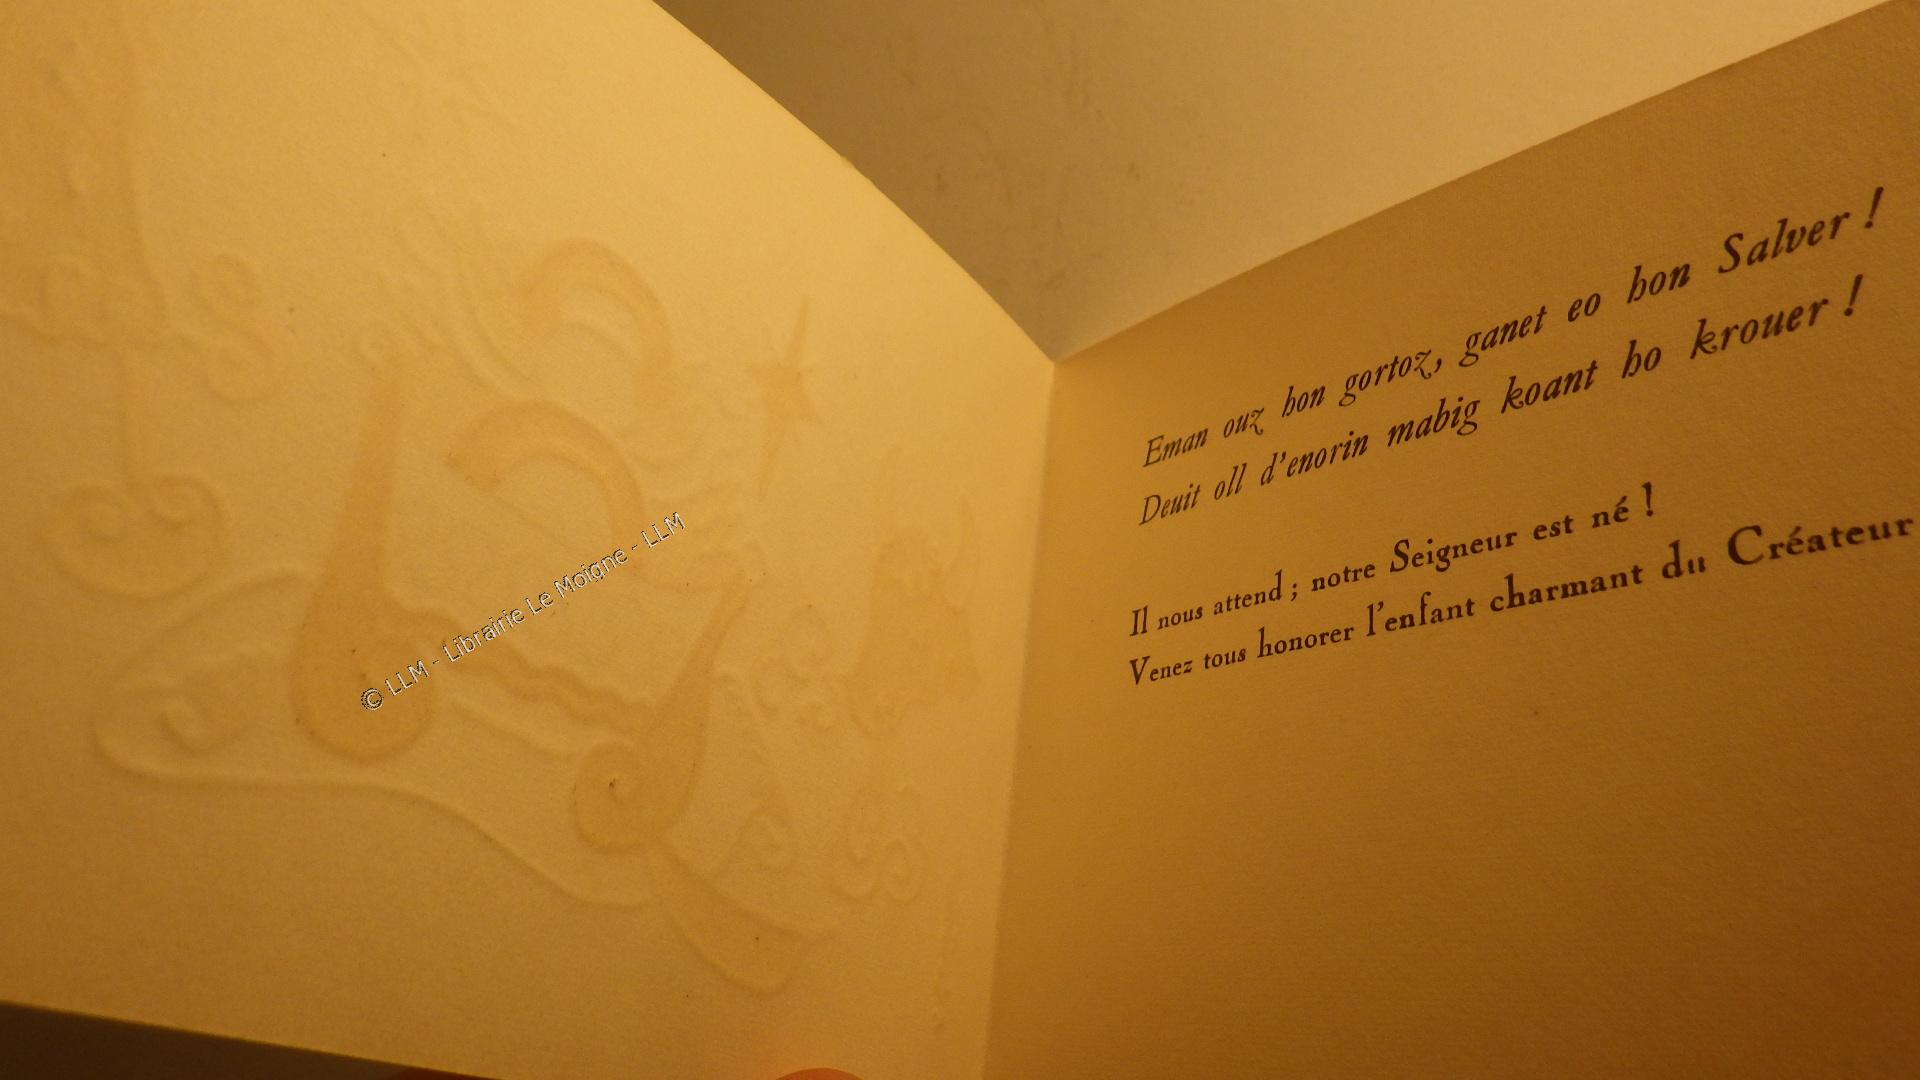 © LLM - Librairie Le Moigne - LLM
Eman ouz hon gortoz, ganet eo hon Salver !
Deuit oll d'enorin mabig koant ho krouer !
Il nous attend ; notre Seigneur est né !
Venez tous honorer l'enfant charmant du Créateur